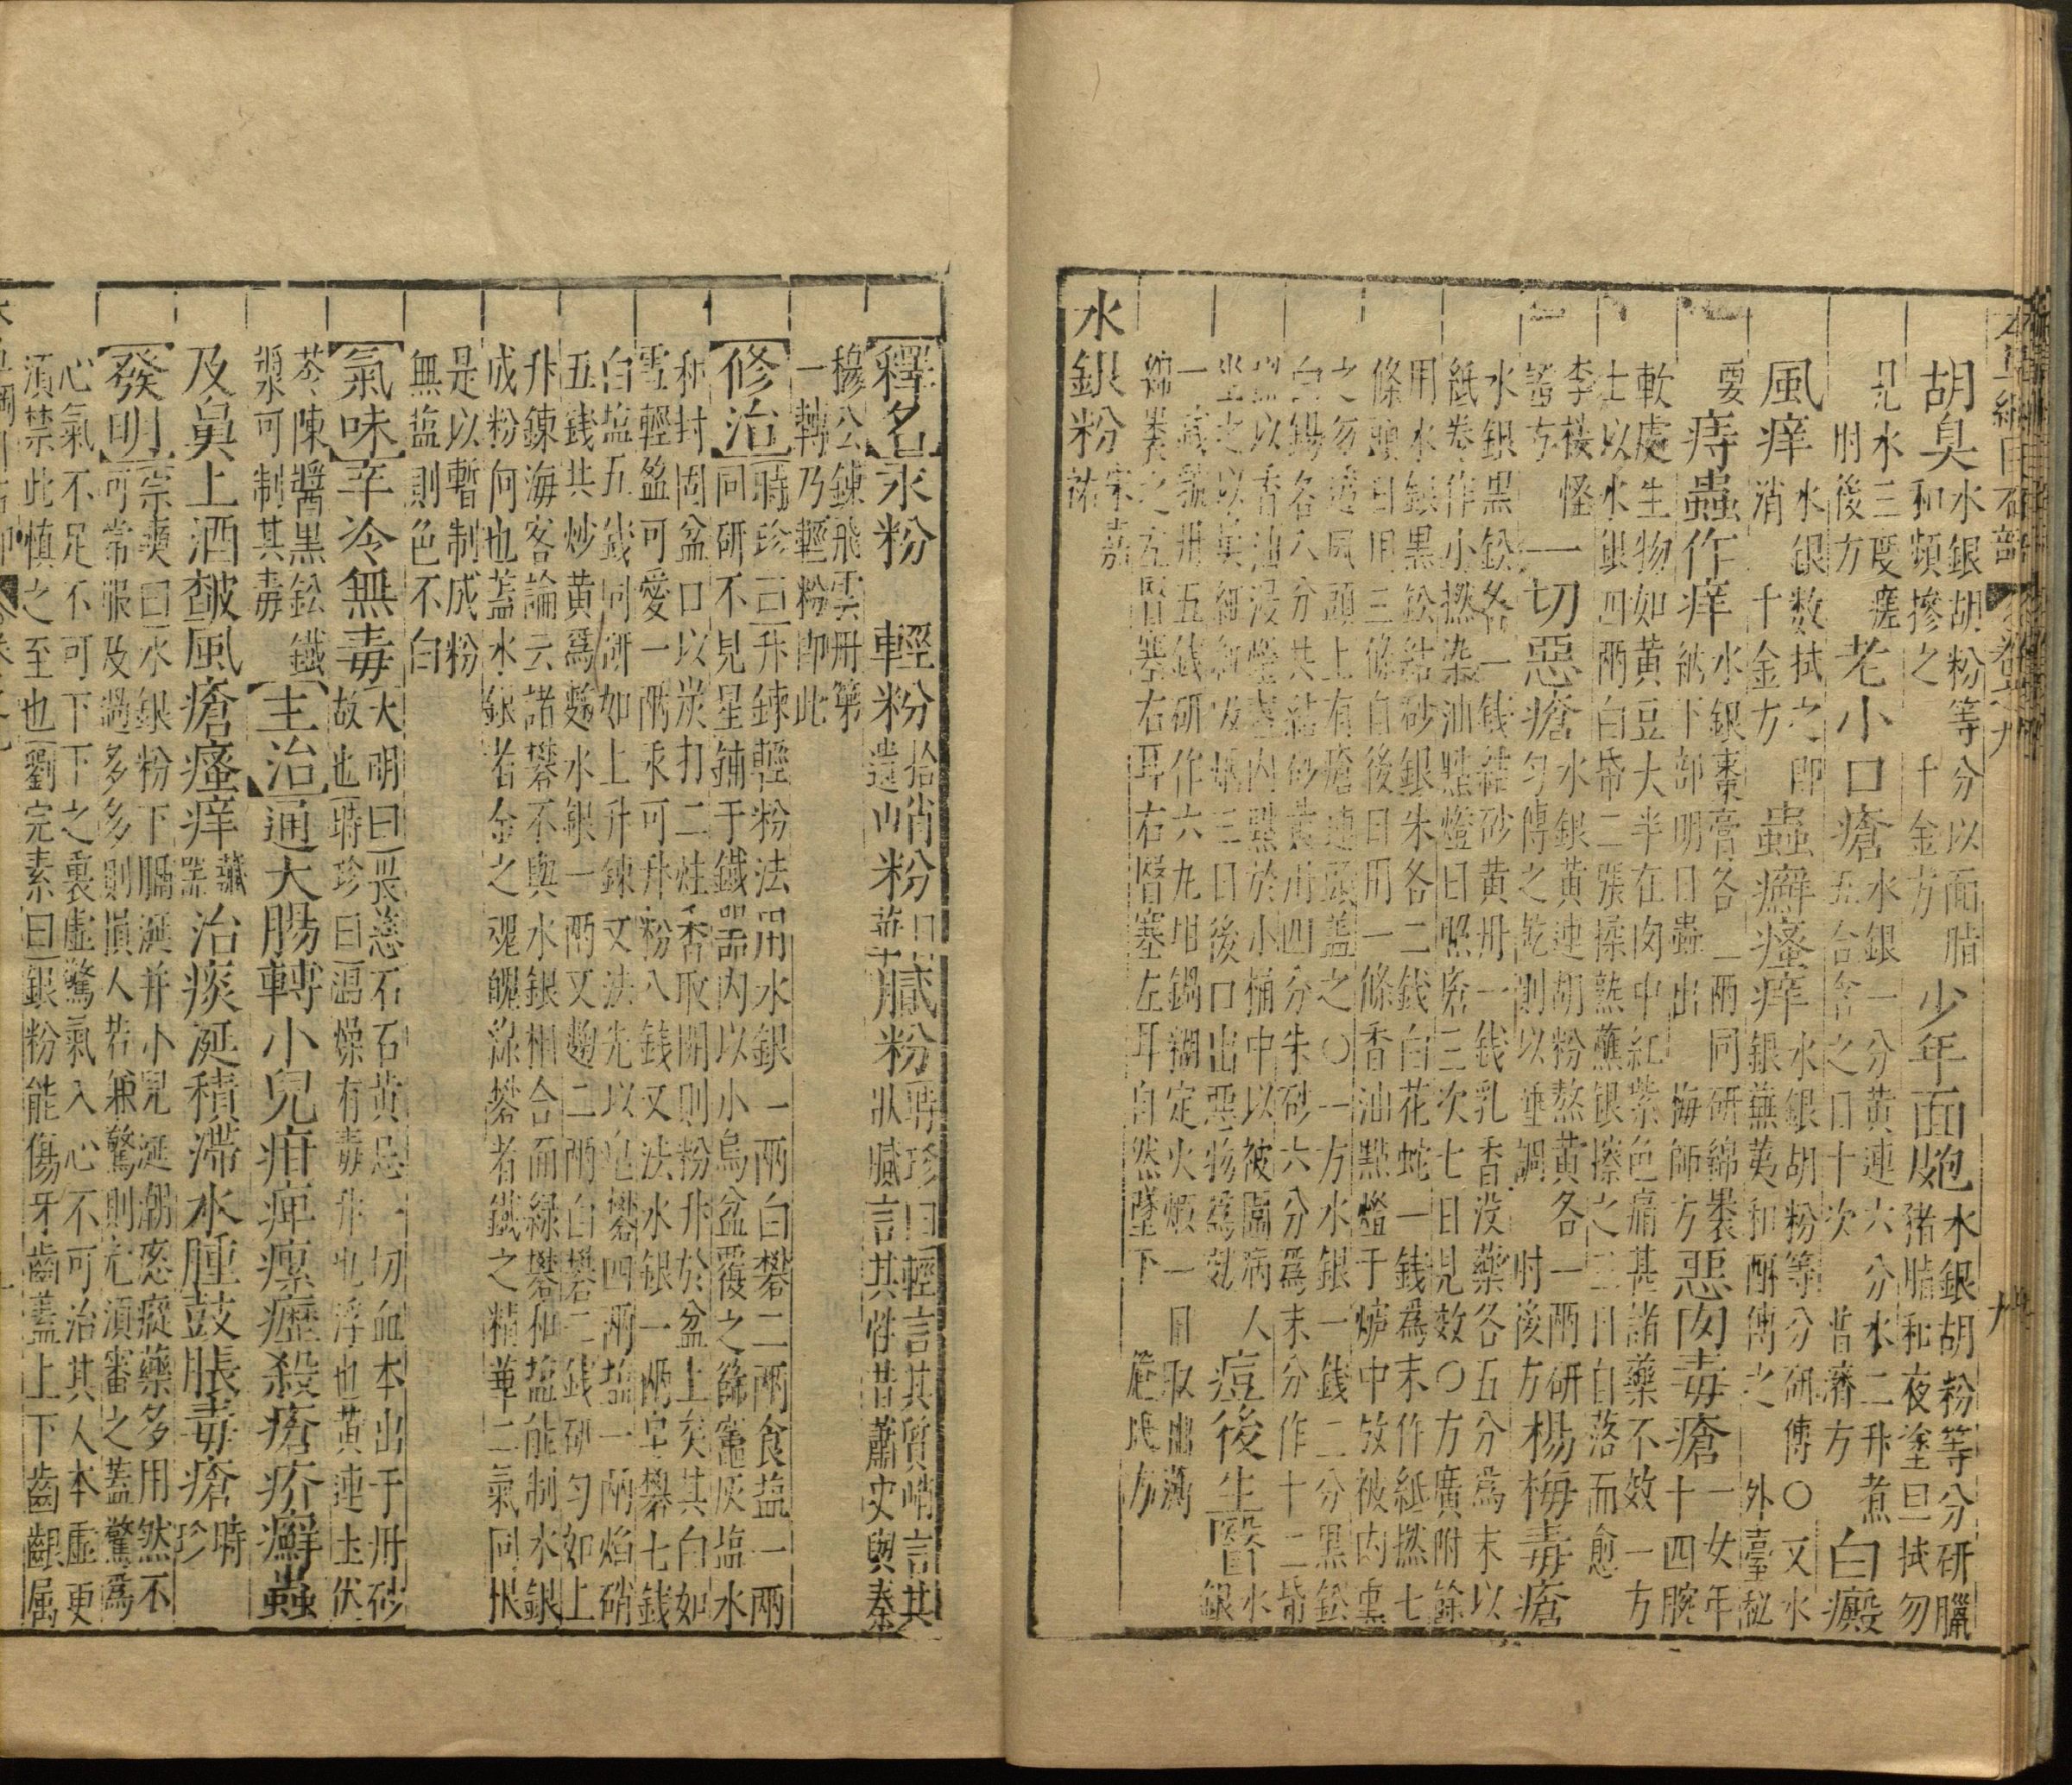 本草綱目石部 卷之九 九
胡臭 水銀胡粉等分以面脂和頻摻之 千金方 少年面皰 水銀胡粉等分研臘猪脂和夜塗旦拭勿
見水三度瘥 肘後方 老小口瘡 水銀一分黃連六分水二升煮五合含之日十次 普濟方 白癜
風痒 水銀数拭之即消 千金方 蟲癬瘙痒 水銀胡粉等分研傅〇又水銀蕪荑和酥傅之 外臺秘
要 痔蟲作痒 水銀棗膏各二兩同研綿褁納下部明日蟲出 梅師方 惡肉毒瘡 一女年十四腕
軟處生物如黃豆大半在肉中紅紫色痛甚諸藥不效一方
士以水銀四兩白帋二張揉熟蘸銀擦之三日自落而愈
李楼怪證方 一切惡瘡 水銀黃連胡粉熬黃各一兩研勻傅之乾則以唾調 肘後方 楊梅毒瘡
水銀黑鈆各一錢結砂黃丹一錢乳香没藥各五分爲末以
紙卷作小撚染油點燈日照瘡三次七日見效〇方廣附餘
用水銀黑鈆結砂銀朱各二錢白花蛇一錢爲末作紙撚七
條頭日用三條自後日用一條香油點燈于爐中放被内熏
之勿透風頭上有瘡連頭蓋之〇一方水銀一錢二分黑鈆
白錫各八分共結砂黃丹四分朱砂六分爲末分作十二帋
撚以香油浸燈盞内點於小桶中以被圍病人
坐之以鼻細細吸烟三日後口出惡物爲效 痘後生瞖 水銀
一錢虢丹五錢研作六丸坩鍋糊定火煅一日取出薄
綿褁之左瞖塞右耳右瞖塞左耳自然墜下 危氏方
水銀粉 宋嘉祐
釋名 汞粉 輕粉 拾遺 峭粉 日華 膩粉 時珍曰輕言其質峭言其狀膩言其性昔蕭史與秦
穆公鍊飛雲丹第
一轉乃輕粉即此
修治 時珍曰升鍊輕粉法用水銀一兩白礬二兩食塩一兩
同研不見星鋪于鐵器内以小烏盆覆之篩竈灰塩水
和封固盆口以炭打二炷香取開則粉升於盆上矣其白如
雪輕盈可愛一兩汞可升粉八錢又法水銀一兩皂礬七錢
白塩五錢同研如上升鍊又法先以皂礬四兩塩一兩焰硝
五錢共炒黃爲麯水銀一兩又麯二兩白礬二錢研勻如上
升鍊海客論云諸礬不與水銀相合而綠礬和塩能制水銀
成粉何也蓋水銀者金之魂魄綠礬者鐵之精華二氣同根
是以暫制成粉
無塩則色不白
氣味 辛冷無毒 大明曰畏慈石石黃忌一切血本出于丹砂故也時珍曰温燥有毒升也浮也黃連土伏
苓陳醬黑鈆鐵漿可制其毒 主治 通大腸轉小兒疳痺瘰癧殺瘡疥癬蟲
及鼻上酒皶風瘡瘙痒 藏器 治痰涎積滯水腫鼓脹毒瘡 時珍
發明 宗奭曰水銀粉下膈涎并小兒涎潮瘈瘲藥多用然不
可常服及過多多則損人若兼驚則尤須審之蓋驚爲
心氣不足不可下下之裏虛驚氣入心不可治其人本虛更
須禁此慎之至也劉完素曰銀粉能傷牙齒蓋上下齒齦属